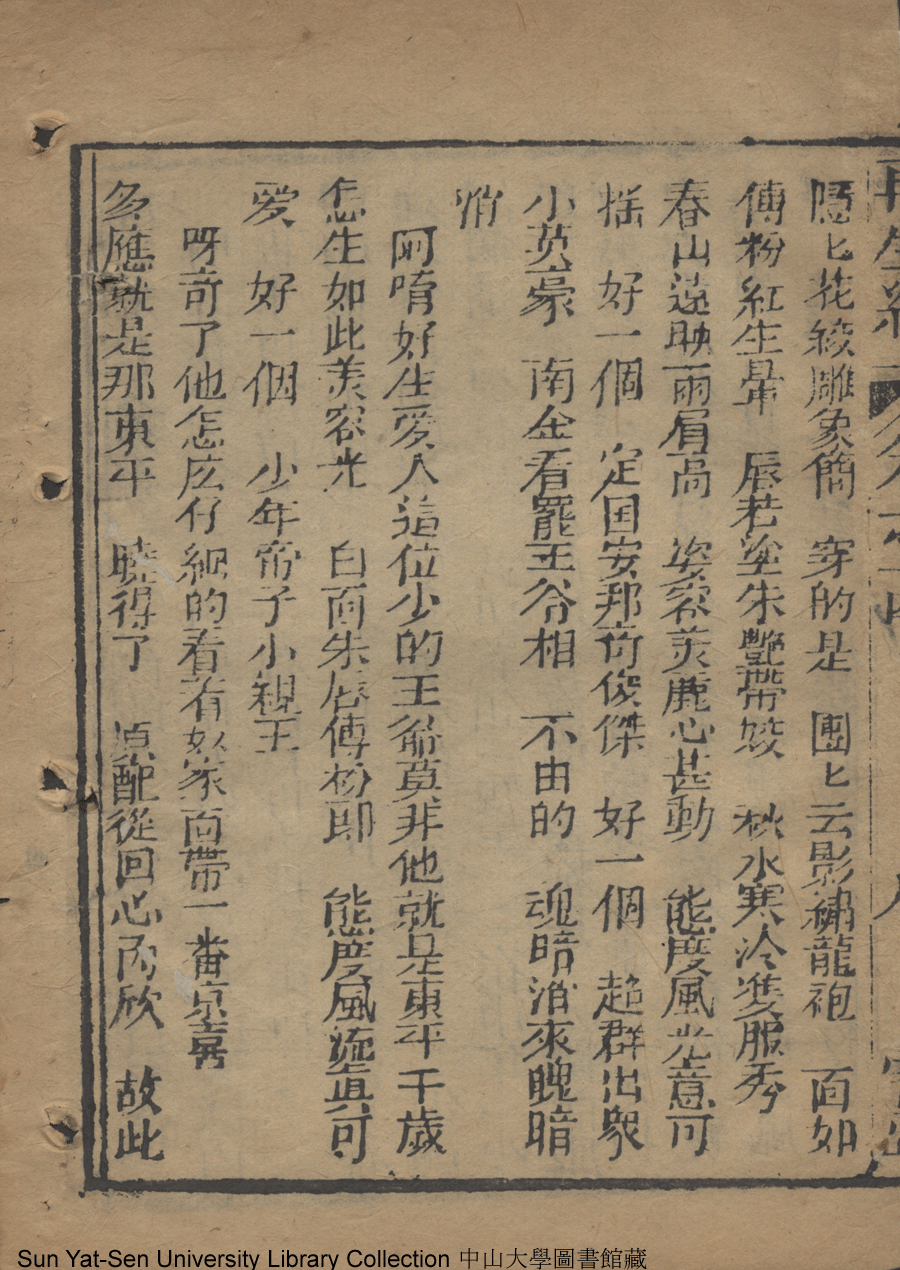 隱匕花綾雕象簡 穿的是 團匕云影繡龍袍 面如
傅粉紅生暈 唇若塗朱艷帶姣 秋水寒冷雙服秀
春山遠映兩眉高 姿容美麗心甚動 能度風光意可
搖 好一個 定国安邦奇俊傑 好一個 超群出眾
小英豪 南金看罷王爷相 不由的 魂暗消來魄暗
消
阿唷好生爱人這位少的王爺莫非他就是東平千歲
怎生如此美容光 白面朱唇傅粉郎 能度風流真可
爱 好一個 少年帝子小親王
呀奇了他怎庅仔細的看有奴家面帶一番京喜
多應就是那東平 曉得了 原配從回心内欣 故此
再生緣
Sun Yat-Sen University Library Collection 中山大學圖書館藏